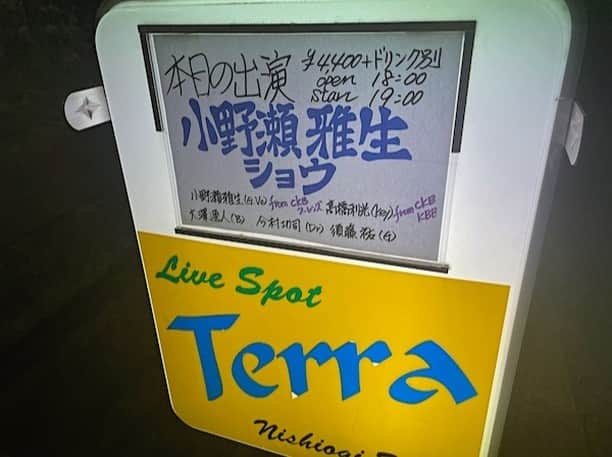 本日の出演 ¥4,400+ドリンク別
open 18:00
start 19:00
小野瀬 雅生
ショウ
小野瀬雅生(G.Vo) from CKB 高橋利光(key) from CKB
人(B) 今村功司(Dr) 須藤祐(G) KBB
Live Spot
Terra
Nishiogi